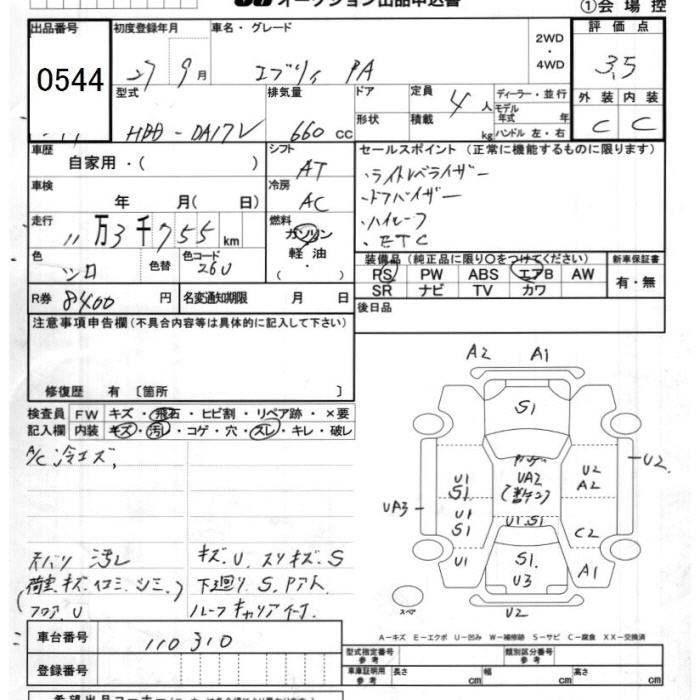 オークション出品申込書
①会場控
出品番号 0544
初度登録年月 27 9月
車名・グレード エブリィ PA
2WD ・ 4WD
評価点 3.5
型式 HBD-DA17V
排気量 660 cc
ドア
形状
定員 4人
積載 kg
ディーラー・並行
モデル年式 年
ハンドル 左・右
外装 C
内装 C
車歴 自家用・( )
シフト AT
セールスポイント (正常に機能するものに限ります)
・ライトレベライザー
・ドアバイザー
・ハイルーフ
・ETC
車検 年 月( 日)
冷房 AC
走行 11万3千755km
燃料 ガソリン 軽油 ( ・ )
色 シロ 色替
色コード 26U
装備品(純正品に限り○をつけてください)
PS PW ABS エアB AW
SR ナビ TV カワ
新車保証書 有・無
R券 8400円
名変通知期限 月 日
後日品
注意事項申告欄(不具合内容等は具体的に記入して下さい)
修復歴 有 〔箇所 〕
検査員記入欄
FW キズ・飛石・ヒビ割・リペア跡・×要
内装 キズ・汚レ・コゲ・穴・スレ・キレ・破レ
A/C 冷エズ、
天バリ 汚レ
フロア.U
キズ.U.スリキズ.S
下廻り S.Pアト
ルーフキャリアイーナ
A2 A1
S1
UA2
U1 S1
U1 S1
U1
UA3
U2 A2
U2
C2
A1
U1.S1
S1. U3
U2
スペア
A−キズ E−エクボ U−凹み W−補修跡 S−サビ C−腐食 XX−交換済
車台番号 110310
登録番号
型式指定番号 参考
類別区分番号 参考
車庫証明用 参考 長さ cm 幅 cm 高さ cm